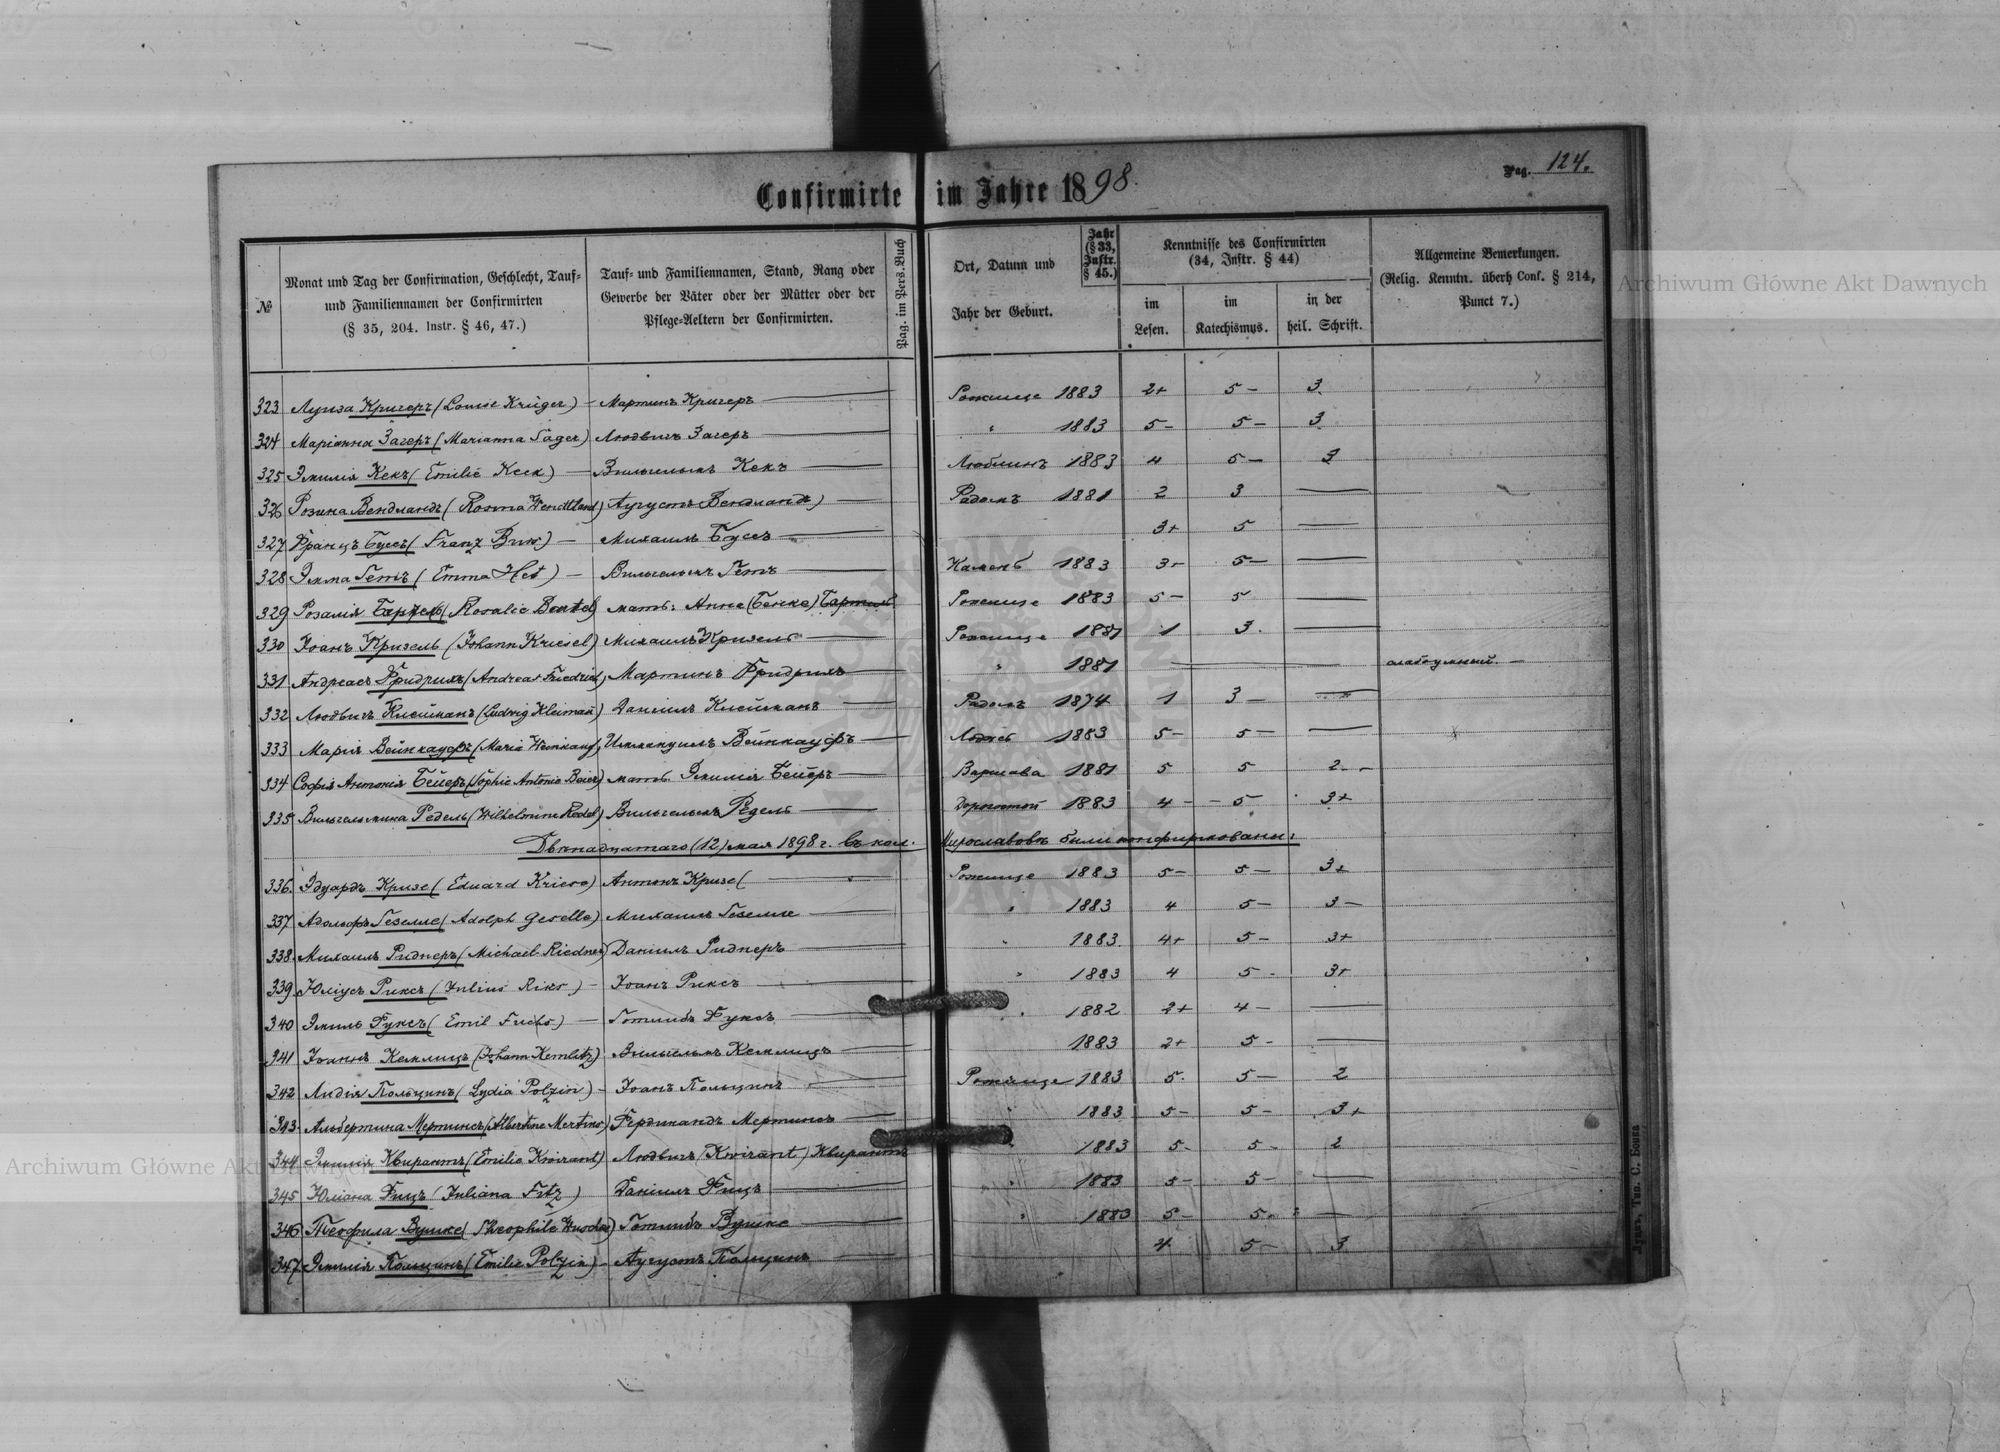 Confirmirte im Jahre 1898.
Pag. 124.
№
Monat und Tag der Confirmation, Geschlecht, Tauf-
und Familiennamen der Confirmirten
(§ 35, 204. Instr. § 46, 47.)
Tauf- und Familiennamen, Stand, Rang oder
Gewerbe der Väter oder der Mütter oder der
Pflege-Aeltern der Confirmirten.
Pag. im Pers.Buch
Ort, Datum und
Jahr der Geburt.
Jahr
(§ 33,
Instr.
§ 45.)
Kenntnisse des Confirmirten
(34, Instr. § 44)
im
Lesen.
im
Katechismus.
in der
heil. Schrift.
Allgemeine Bemerkungen.
(Relig. Kenntn. überh Conf. § 214,
Punct 7.)
323 Луиза Кригеръ (Louise Krüger) — Мартинъ Кригеръ — Рожище 1883 2+ 5 — 3
324 Маріанна Загеръ (Marianna Säger) Людвигъ Загеръ — " 1883 5 — 5 — 3
325 Эмилія Кекъ (Emilie Keck) — Вильгельмъ Кекъ — Люблинъ 1883 4 5 — 3
326 Розина Вендландъ (Rosina Wendtland) Аугустъ Вендландъ) — Радомъ 1881 2 3 —
327 Францъ Буссъ (Franz Buss) — Михаилъ Буссъ — 3+ 5 —
328 Эмма Гетъ (Emma Het) — Вильгельмъ Гетъ — Камень 1883 3+ 5 — —
329 Розалія Бартель (Rosalie Bartel) мать: Анна (Бенке) Бартель Рожище 1883 5 — 5 —
330 Іоанъ Кризель (Johann Kriesel) Михаилъ Кризель — Рожище 1881 1 3. —
331 Андреасъ Фридрихъ (Andreas Friedrich) Мартинъ Фридрихъ — " 1881 — слабоумный. —
332 Людвигъ Клейманъ (Ludwig Kleimann) Даніилъ Клейманъ — Радомъ 1874 1 3 — —
333 Марія Вейнкауфъ (Maria Weinkauf) Иммануилъ Вейнкауфъ — Лодзь 1883 5 — 5 — —
334 Софія Антонія Бейеръ (Sophie Antonie Beier) мать Эмилія Бейеръ — Варшава 1881 5 5 2 —
335 Вильгельмина Редель (Wilhelmine Redel) Вильгельмъ Редель — 1883 4 — 5 — 3+
Двѣнадцатаго (12) мая 1898 г. въ кол. Мирославовкѣ были конфирмованы:
336. Эдуардъ Кризе (Eduard Kriese) Антонъ Кризе — Рожище 1883 5 — 5 — 3+
337 Адольфъ Гезелле (Adolph Geselle) Михаилъ Гезелле — " 1883 4 5 — 3 —
338. Михаилъ Риднеръ (Michael Riedner) Даніилъ Риднеръ — " 1883. 4+ 5 — 3+
339 Юліусъ Риксъ (Julius Riks) — Іоанъ Риксъ — " 1883 4 5 — 3+
340 Эмиль Фуксъ (Emil Fuchs) — Готлибъ Фуксъ — " 1882 2+ 4 — —
341 Іоаннъ Кемлицъ (Johann Kemlitz) Вильгельмъ Кемлицъ — 1883 2+ 5 — —
342 Лидія Польцинъ (Lydia Polzin) — Іоанъ Польцинъ — Рожище 1883 5. 5 — 2
343. Альбертина Мертинсъ (Albertine Mertins) Фердинандъ Мертинсъ — " 1883 5 — 5 — 3+
344 Эмилія Квирантъ (Emilie Kwirant) Людвигъ (Kwirant) Квирантъ " 1883 5 — 5 — 2
345 Юліана Фицъ (Juliana Fitz) Даніилъ Фицъ — " 1883 5 — 5 — —
346 Теофила Вушке (Theophile) Готлибъ Вушке — " 1883 5 — 5. —
347 Эмилія Польцинъ (Emilie Polzin) — Аугустъ Польцинъ — 4 5 — 3
Archiwum Główne Akt Dawnych
Archiwum Główne Akt Dawnych